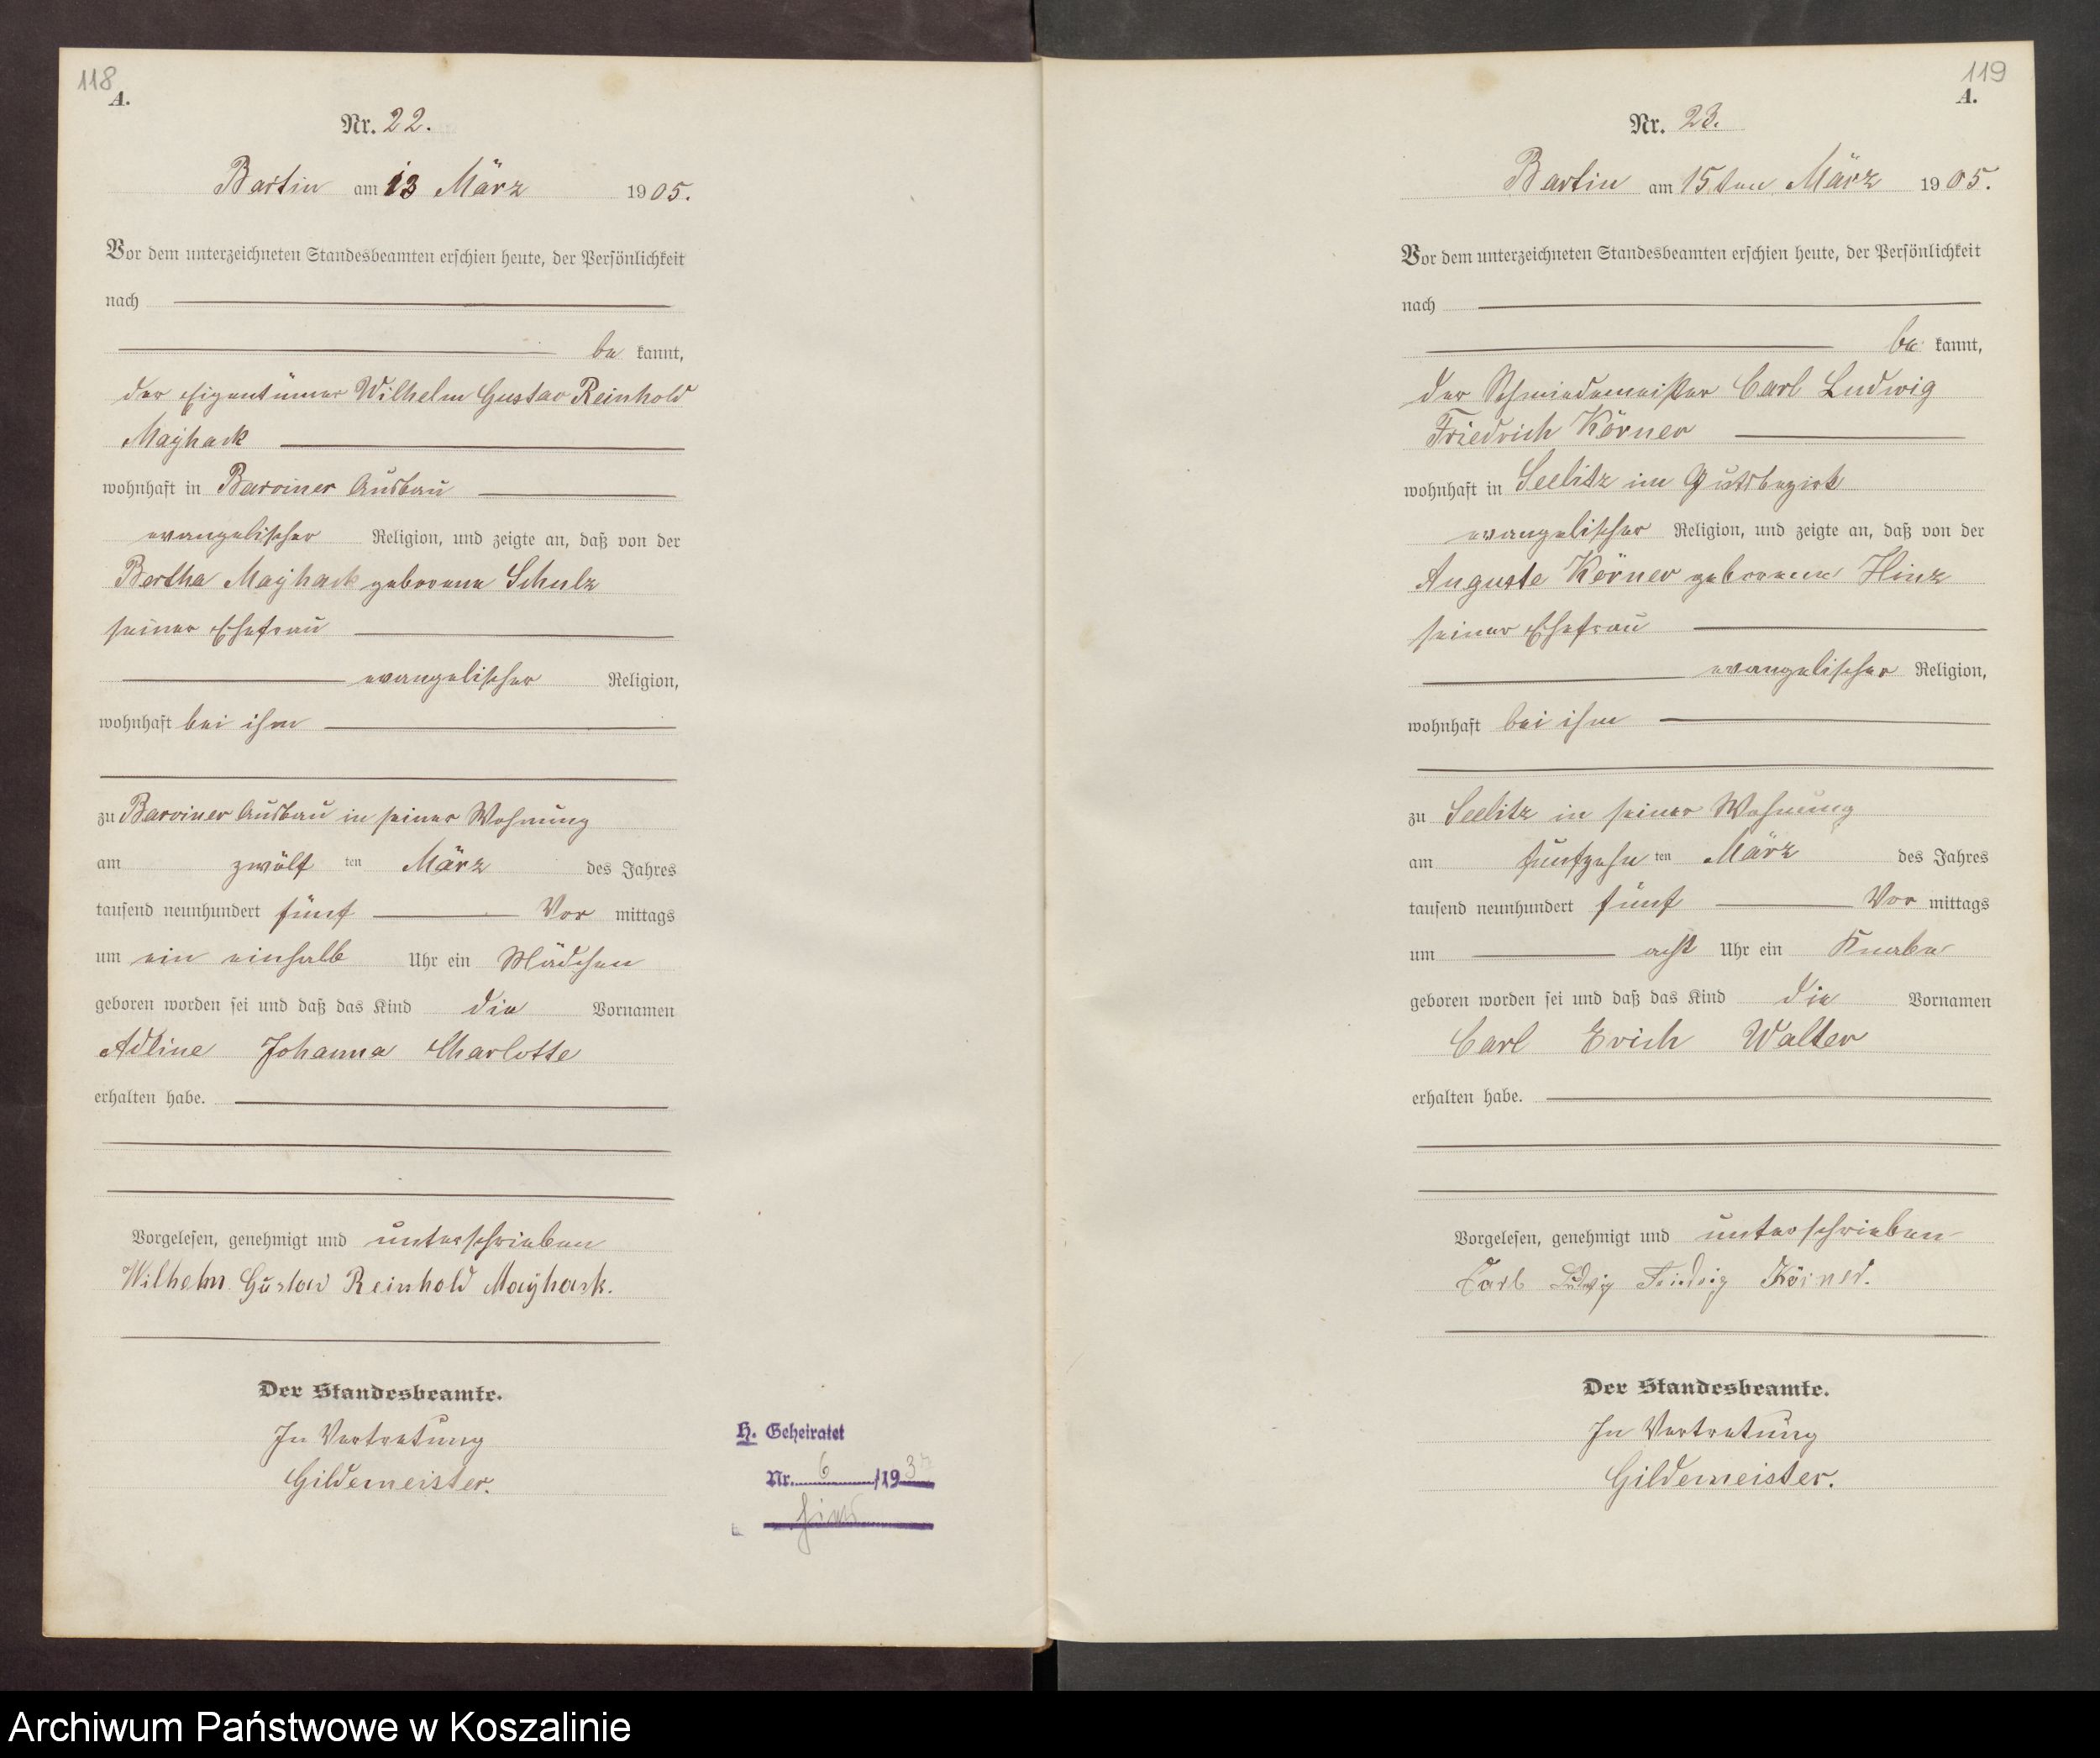 118
A.
Nr. 22.
Bartin am 13 März 1905.
Vor dem unterzeichneten Standesbeamten erschien heute, der Persönlichkeit
nach
be kannt,
der Eigentümer Wilhelm Gustav Reinhold
Mayhack
wohnhaft in Barviner Ausbau
evangelischer Religion, und zeigte an, daß von der
Bertha Mayhack geborene Schulz
seiner Ehefrau
evangelischer Religion,
wohnhaft bei ihm
zu Barviner Ausbau in seiner Wohnung
am zwölf ten März des Jahres
tausend neunhundert fünf Vor mittags
um ein einhalb Uhr ein Mädchen
geboren worden sei und daß das Kind die Vornamen
Adline Johanna Charlotte
erhalten habe.
Vorgelesen, genehmigt und unterschrieben
Wilhelm Gustav Reinhold Mayhack.
Der Standesbeamte.
In Vertretung
Gildemeister.
H. Geheiratet
Nr. 6 /1937
119
A.
Nr. 23.
Bartin am 15ten März 1905.
Vor dem unterzeichneten Standesbeamten erschien heute, der Persönlichkeit
nach
be kannt,
der Schmiedemeister Carl Ludwig
Friedrich Körner
wohnhaft in Seelitz im Gutsbezirk
evangelischer Religion, und zeigte an, daß von der
Auguste Körner geborene Hinz
seiner Ehefrau
evangelischer Religion,
wohnhaft bei ihm
zu Seelitz in seiner Wohnung
am fünfzehn ten März des Jahres
tausend neunhundert fünf Vor mittags
um acht Uhr ein Knabe
geboren worden sei und daß das Kind die Vornamen
Carl Erich Walter
erhalten habe.
Vorgelesen, genehmigt und unterschrieben
Carl Ludwig Friedrig Körner.
Der Standesbeamte.
In Vertretung
Gildemeister.
Archiwum Państwowe w Koszalinie